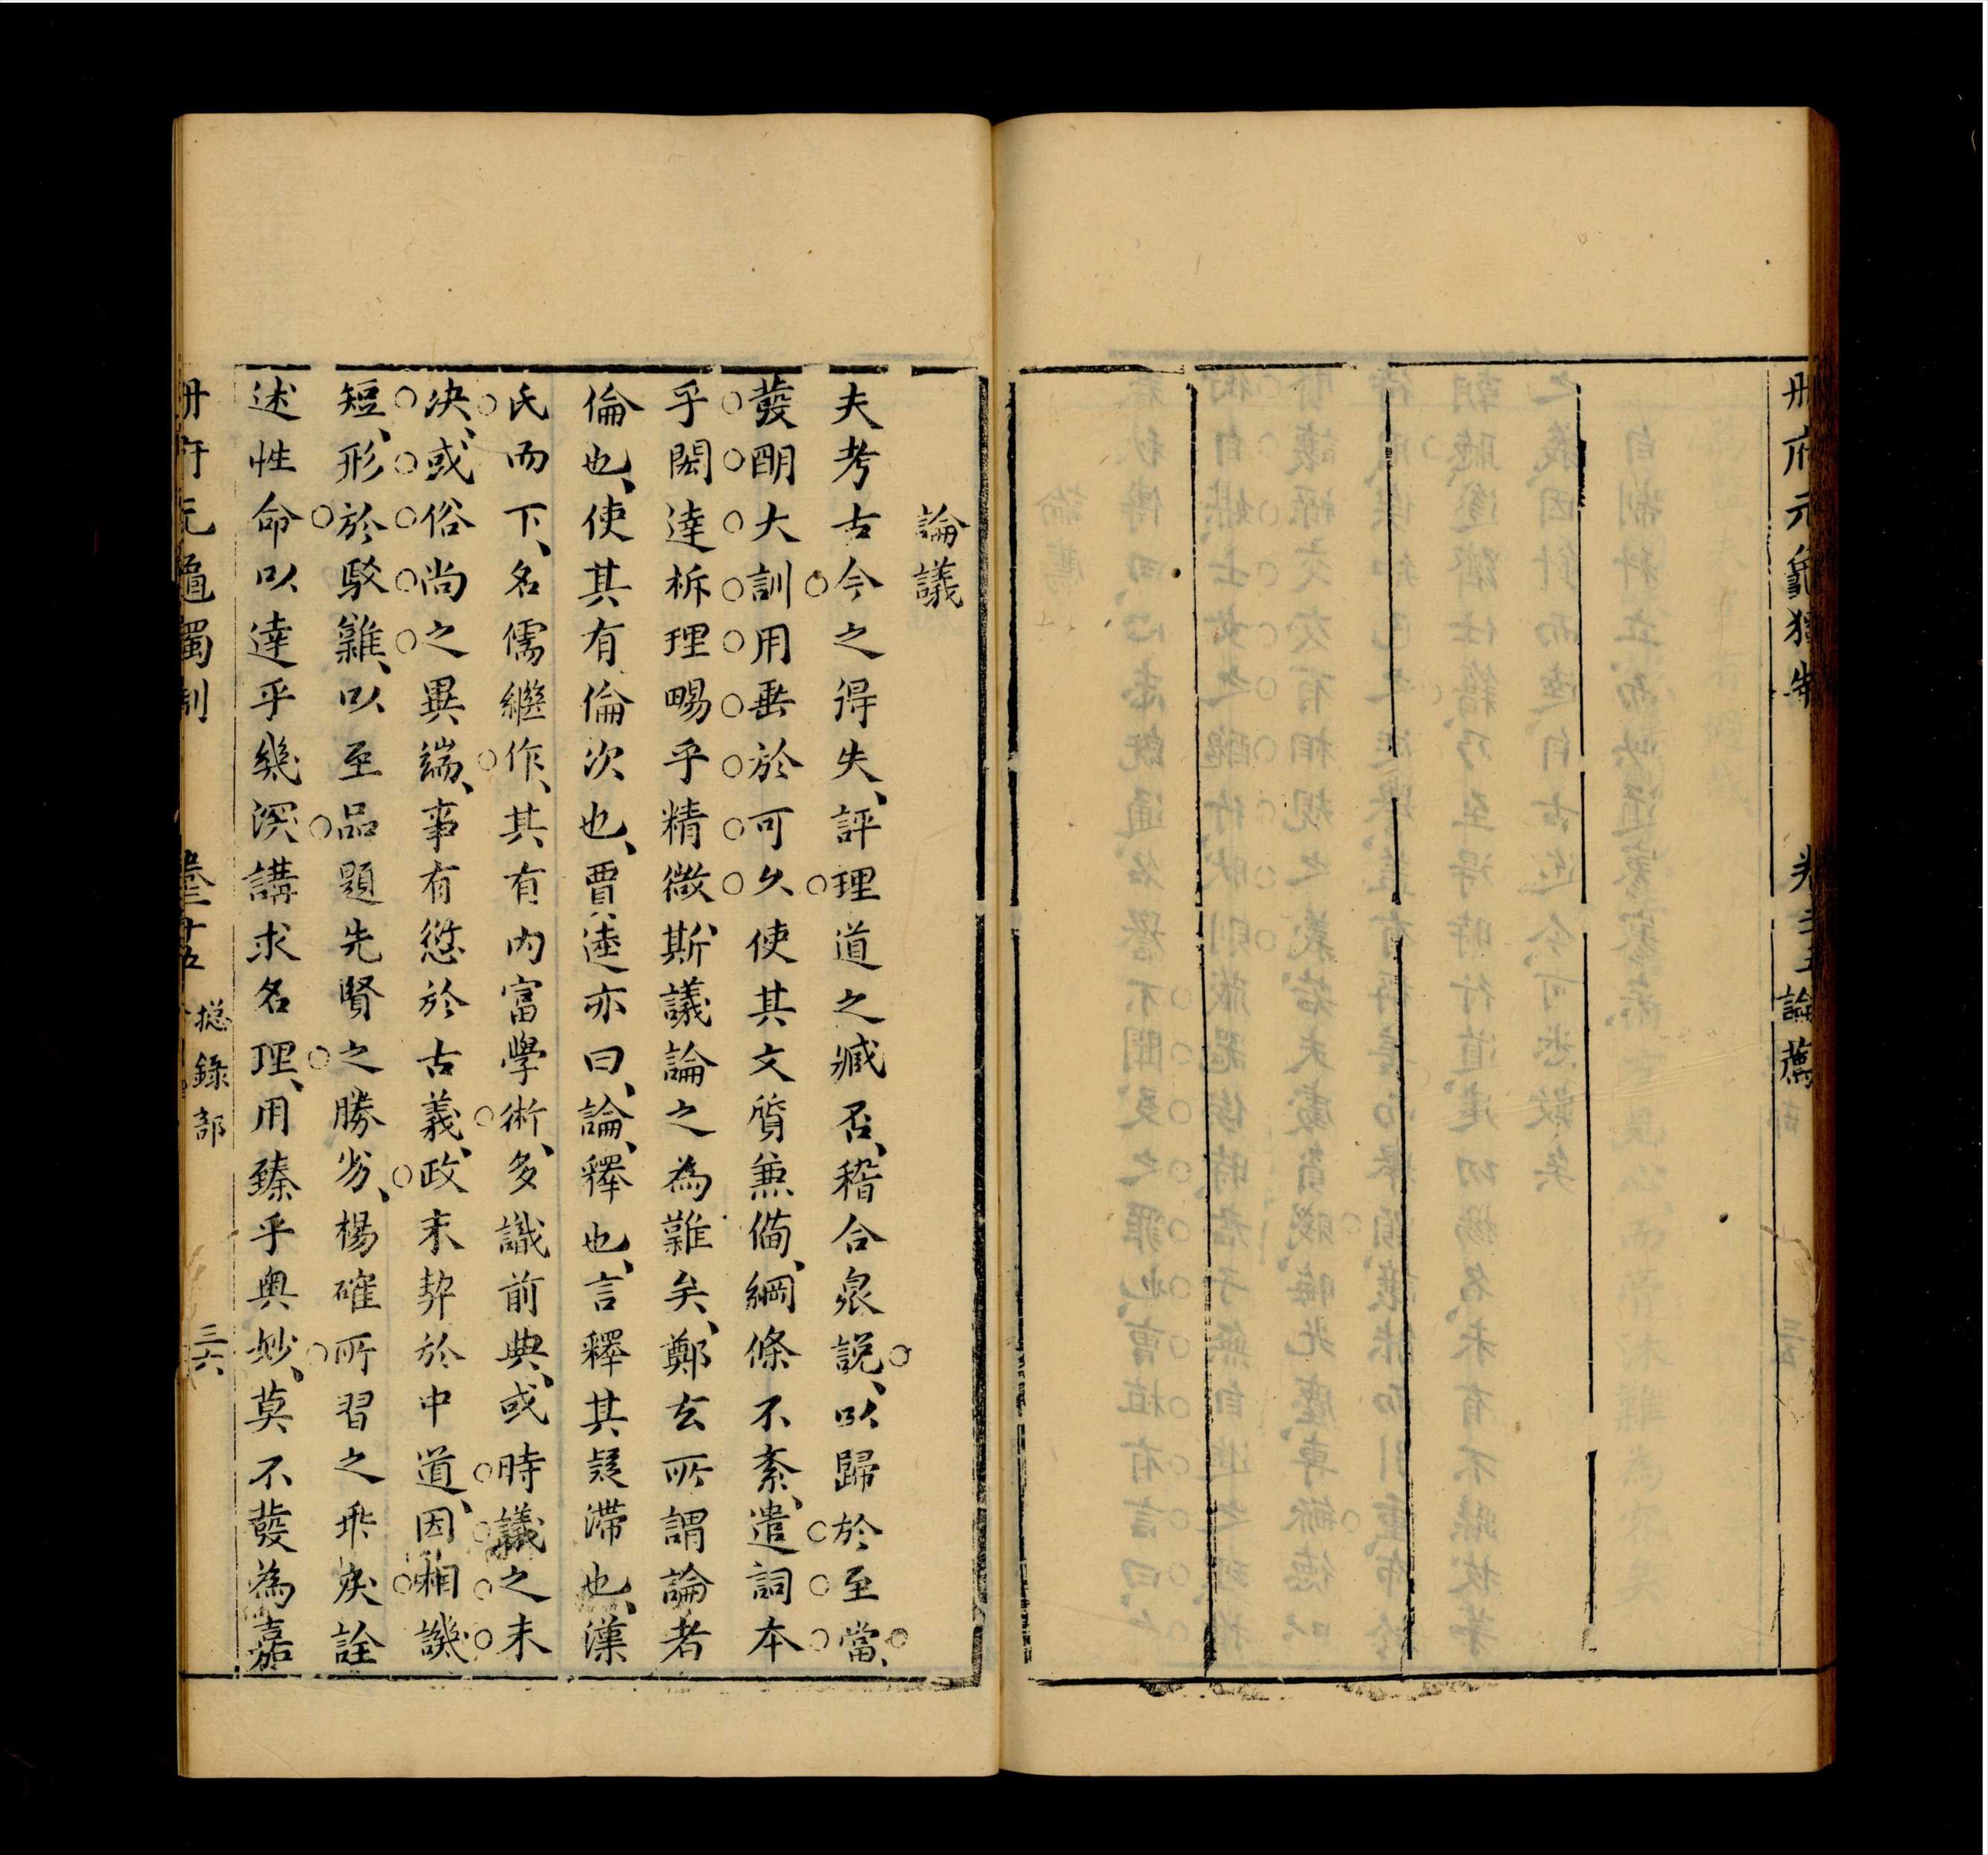 册府元龜獨制
論薦
論議
夫考古今之得失、評理道之臧否、稽合衆說、以歸於至當、
發明大訓用垂於可久使其文質兼備、綱條不紊、遣詞本
乎閎達析理暢乎精微、斯議論之為難矣、鄭玄所謂論者
倫也、使其有倫次也、賈逵亦曰、論、釋也、言釋其疑滯也、漢
氏而下、名儒繼作、其有內富學術、多識前典、或時議之未
決、或俗尚之異端、事有愆於古義、政未契於中道、因廂譏
短、形於駁雜、以至品題先賢之勝劣、楊確所習之乖戾詮
述性命以達乎幾深講求名理、用臻乎奧妙、莫不發為嘉
册府元龜獨制
總錄部
三六